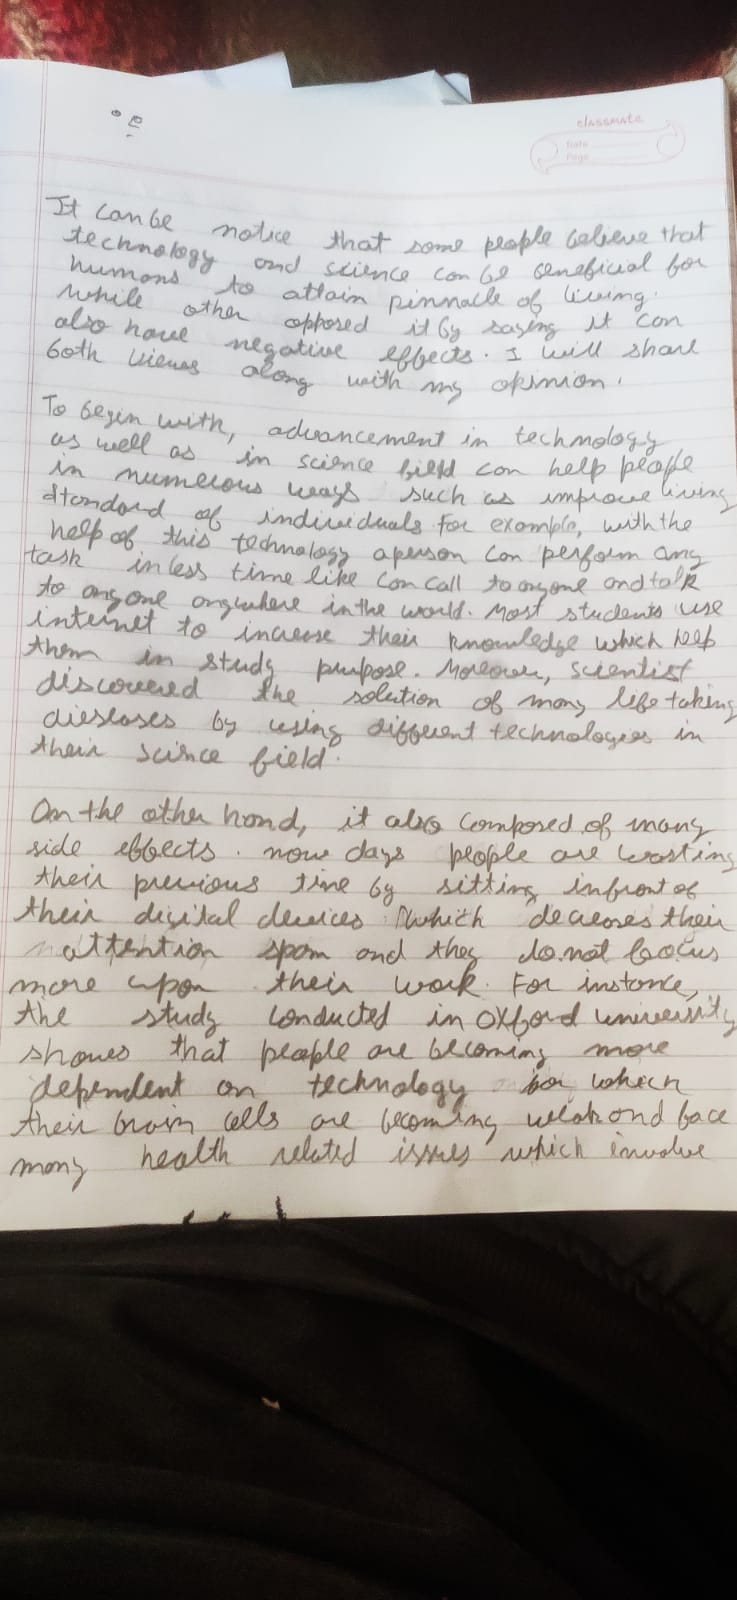 classmate
Date
Page
It can be notice that some people believe that
technology and science can be beneficial for
humans to attain pinnacle of living.
While other opposed it by saying it can
also have negative effects. I will share
both views along with my opinion.
To begin with, advancement in technology
as well as in science field can help people
in numerous ways such as improve living
standard of individuals For example, with the
help of this technology a person can perform any
task in less time like can call to anyone and talk
to anyone anywhere in the world. Most students use
internet to increase their knowledge which help
them in study purpose. Moreover, scientist
discovered the solution of many life taking
diseases by using different technologies in
their science field.
On the other hand, it also composed of many
side effects. now days people are wasting
their previous time by sitting infront of
their digital devices which decreses their
attention span and they do not focus
more upon their work. For instance,
the study conducted in Oxford university
shows that people are becoming more
dependent on technology for which
their brain cells are becoming weak and face
many health related issues which involve